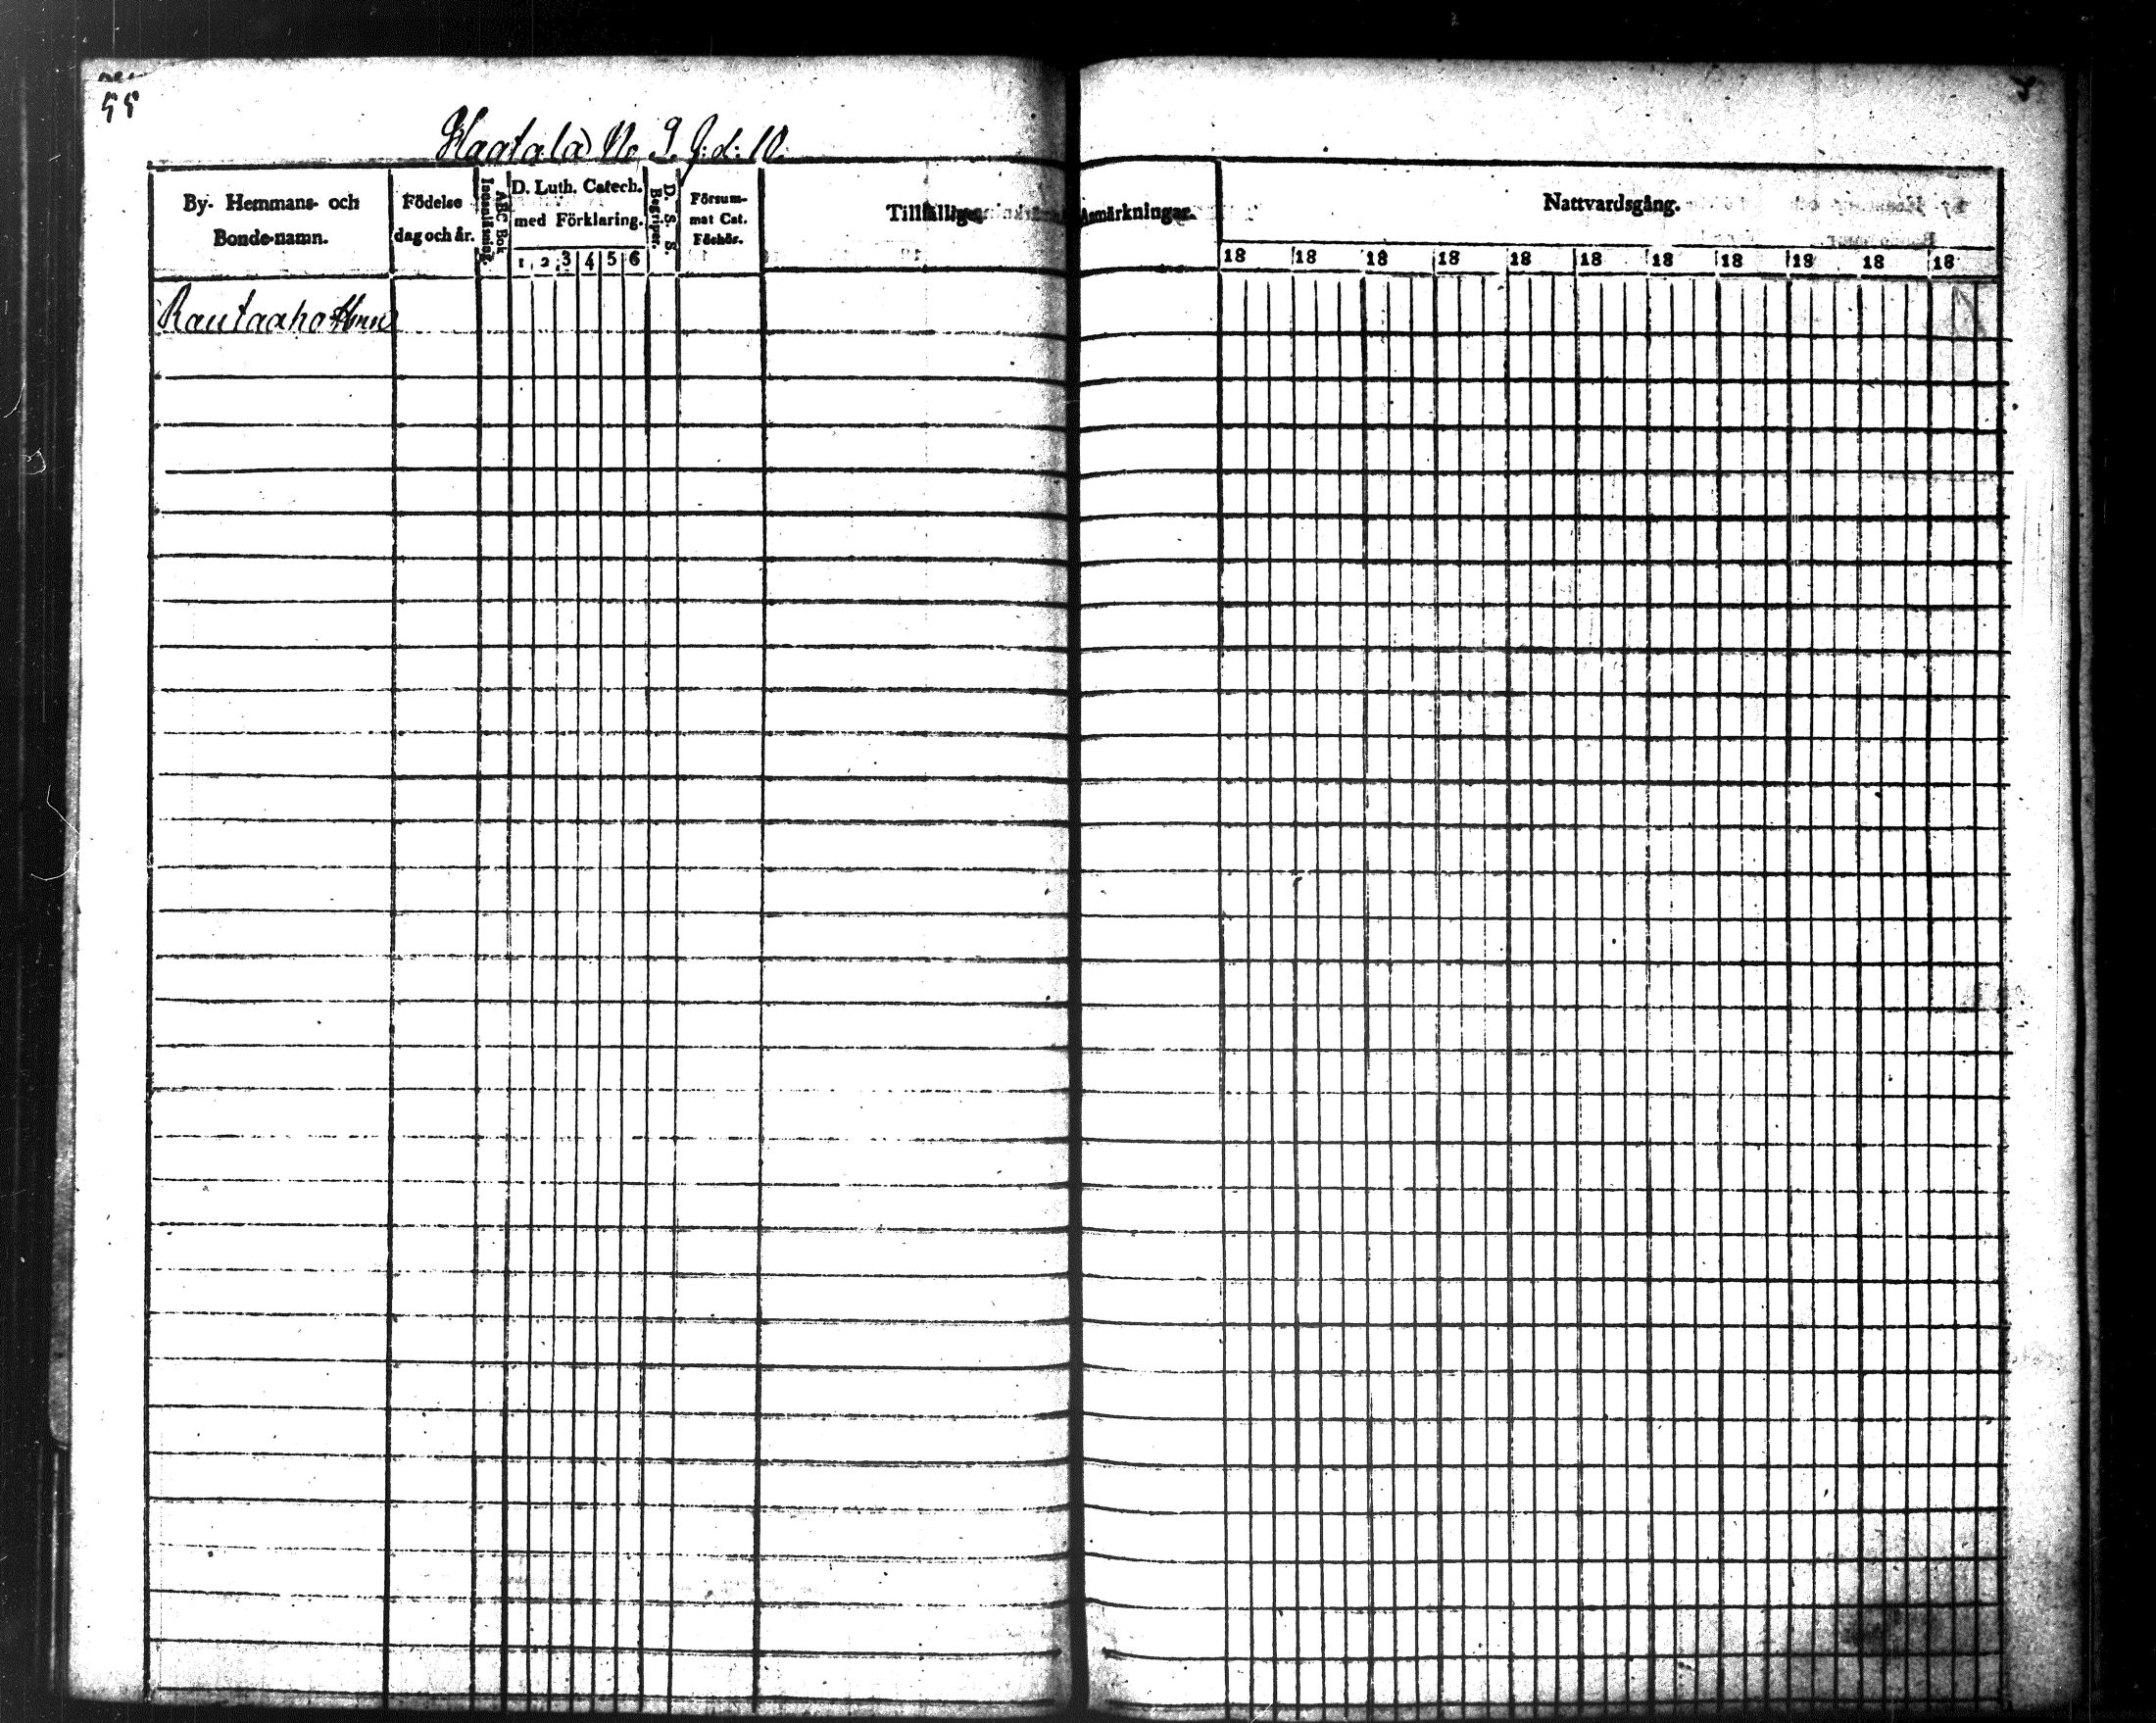 55
Haatala No 9.
By- Hemmans- och
Bonde-namn.
Födelse
dag och år.
ABC Bok
Innanläsning.
D. Luth. Catech.
med Förklaring.
1 2 3 4 5 6
D. S. S.
Begriper.
Försum-
mat Cat.
Förhör.
Tillfälliga
Anmärkningar.
Nattvardsgång.
18 18 18 18 18 18 18 18 18 18 18
Rautaaho